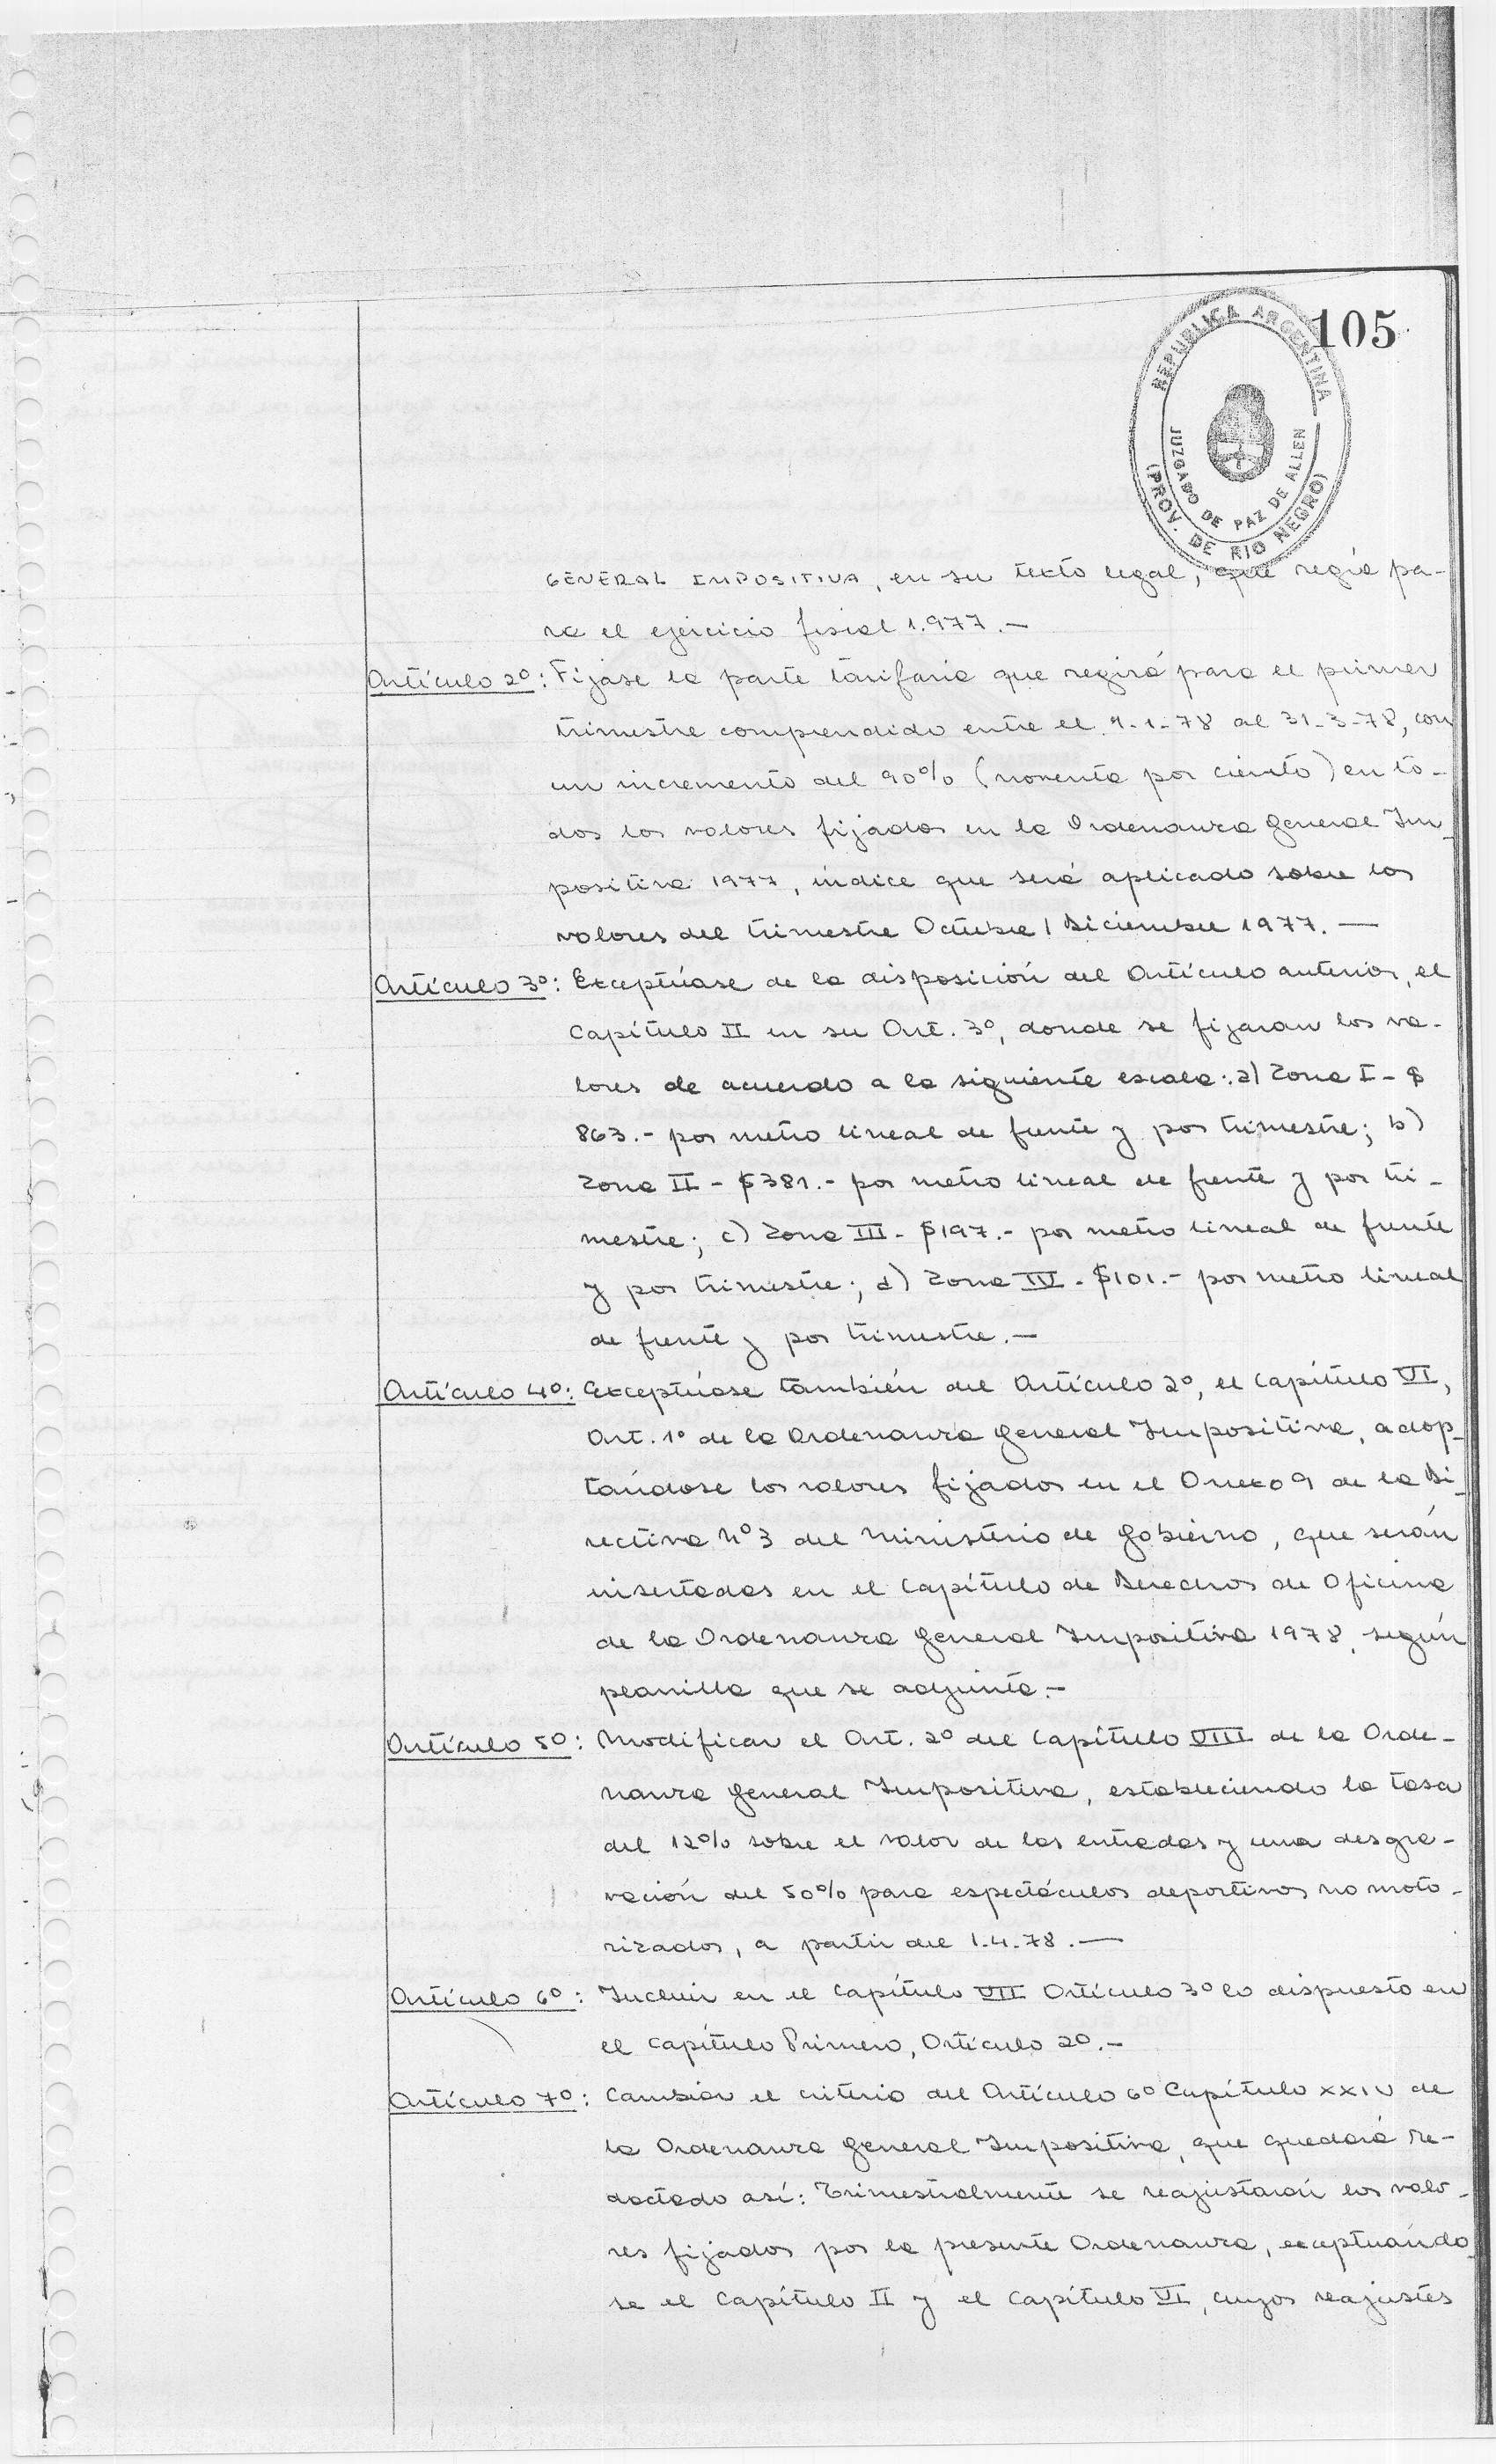 105
REPUBLICA ARGENTINA
JUZGADO DE PAZ DE ALLEN
(PROV. DE RIO NEGRO)
GENERAL IMPOSITIVA, en su texto legal, que regía pa-
ra el ejercicio fiscal 1.977.—
Artículo 2º: Fíjase la parte tarifaria que regirá para el primer
trimestre comprendido entre el 1-1-78 al 31-3-78, con
un incremento del 90% (noventa por ciento) en to-
dos los valores fijados en la Ordenanza General Im-
positiva 1977, índice que será aplicado sobre los
valores del trimestre Octubre/Diciembre 1977.—
Artículo 3º: Exceptúase de la disposición del Artículo anterior, el
Capítulo II en su Art. 3º, donde se fijaran los va-
lores de acuerdo a la siguiente escala: a) Zona I - $
863.- por metro lineal de frente y por trimestre; b)
Zona II - $381.- por metro lineal de frente y por tri-
mestre; c) Zona III - $197.- por metro lineal de frente
y por trimestre; d) Zona IV - $101.- por metro lineal
de frente y por trimestre.—
Artículo 4º: Exceptúase también del Artículo 2º, el Capítulo VI,
Art. 1º de la Ordenanza General Impositiva, adop-
tándose los valores fijados en el Anexo 9 de la Di-
rectiva Nº 3 del Ministerio de Gobierno, que serán
insertadas en el Capítulo de Derechos de Oficina
de la Ordenanza General Impositiva 1978, según
planilla que se adjunta.-
Artículo 5º: Modificar el Art. 2º del Capítulo VIII de la Orde-
nanza General Impositiva, estableciendo la tasa
del 12% sobre el valor de las entradas y una desgra-
vación del 50% para espectáculos deportivos no moto-
rizados, a partir del 1.4.78.—
Artículo 6º: Incluir en el Capítulo VII Artículo 3º lo dispuesto en
el Capítulo Primero, Artículo 2º.-
Artículo 7º: Cambiar el criterio del Artículo 6º Capítulo XXIV de
la Ordenanza General Impositiva, que quedará re-
dactado así: Trimestralmente se reajustarán los valo-
res fijados por la presente Ordenanza, exceptuándo-
se el Capítulo II y el Capítulo VI, cuyos reajustes